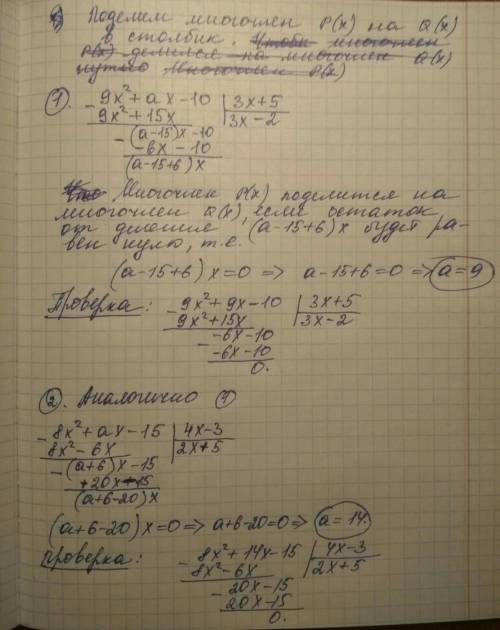 Поделем многочлен P(x) на Q(x)
в столбик. Чтобы многочлен
P(x) делился на многочлен Q(x)
нужно Многочлен P(x)
① 9x² + ax - 10 | 3x + 5
- 9x² + 15x | 3x - 2
- (a-15)x - 10
-6x - 10
(a-15+6)x
Многочлен P(x) поделится на
многочлен Q(x), если остаток
от деления (a-15+6)x будет ра-
вен нулю, т.е.
(a-15+6)x=0 => a-15+6=0 => a=9
Проверка: - 9x² + 9x - 10 | 3x + 5
9x² + 15x | 3x - 2
- -6x - 10
-6x - 10
0.
②. Аналогично ①
- 8x² + ax - 15 | 4x - 3
8x² - 6x | 2x + 5
- (a+6)x - 15
+20x - 15
(a+6-20)x
(a+6-20)x=0 => a+6-20=0 => a=14.
проверка: - 8x² + 14x - 15 | 4x - 3
8x² - 6x | 2x + 5
- 20x - 15
20x - 15
0.